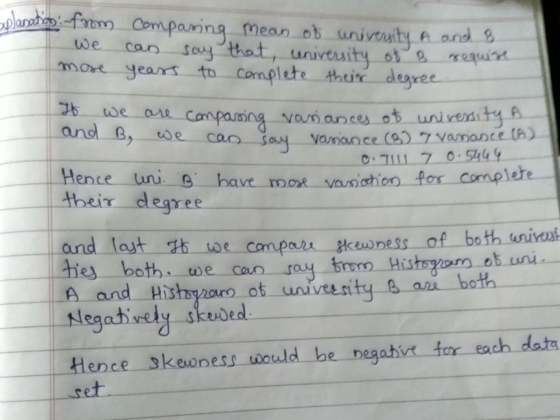 explanation:- from comparing mean of university A and B
we can say that, univeuity of B require
more years to complete their degree
If we are comparing variances of university A
and B, we can say variance (B) > variance (A)
0.7111 > 0.5444
Hence uni. B have more variation for complete
their degree
and last If we compare skewness of both universi
ties both. we can say from Histogram of uni.
A and Histogram of university B are both
Negatively skewed.
Hence skewness would be negative for each data
set.